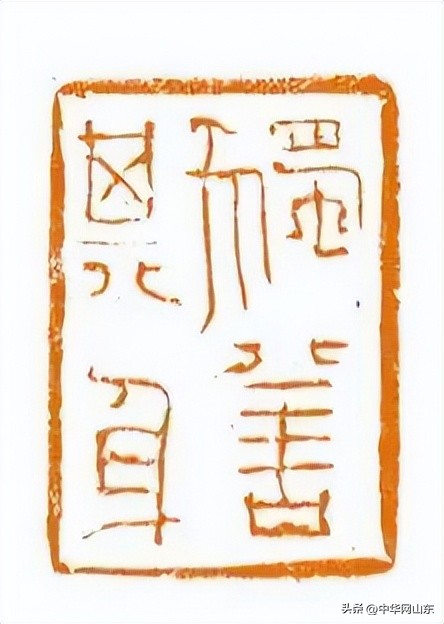 獨善
其身
头条 @中华网山东